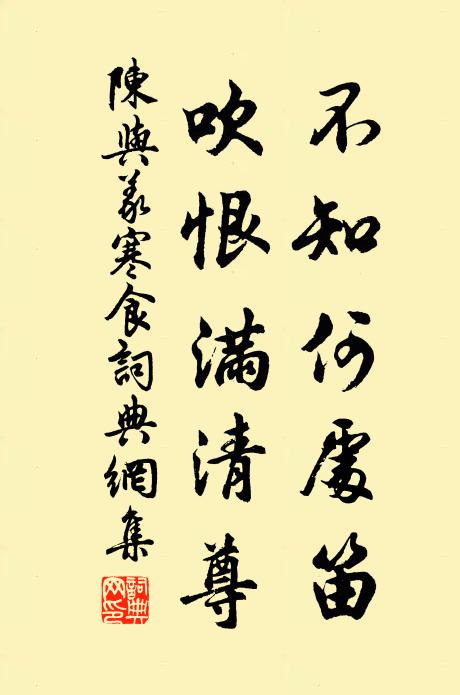 不知何處笛
吹恨滿清尊
陳與義寒食詞典網集
詞典網印